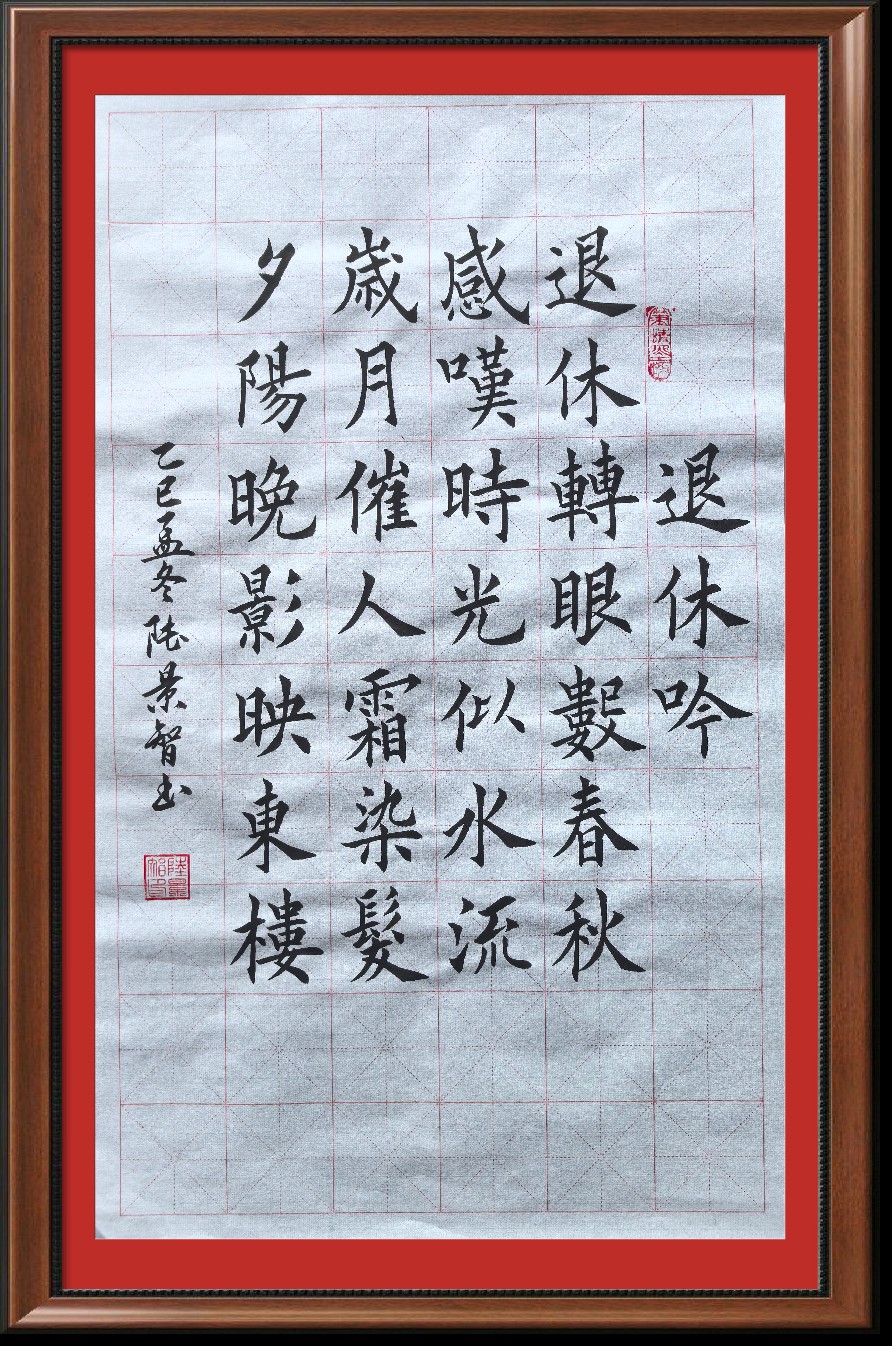 退休吟
退休轉眼數春秋
感嘆時光似水流
歲月催人霜染髮
夕陽晚影映東樓
乙巳孟冬陸景智書